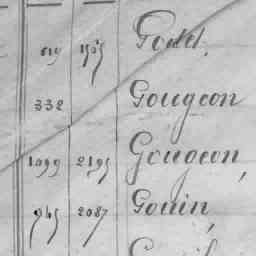 619 1505 Godel,
332 Gougeon
1099 2195 Gougeon,
945 2087 Gouin,